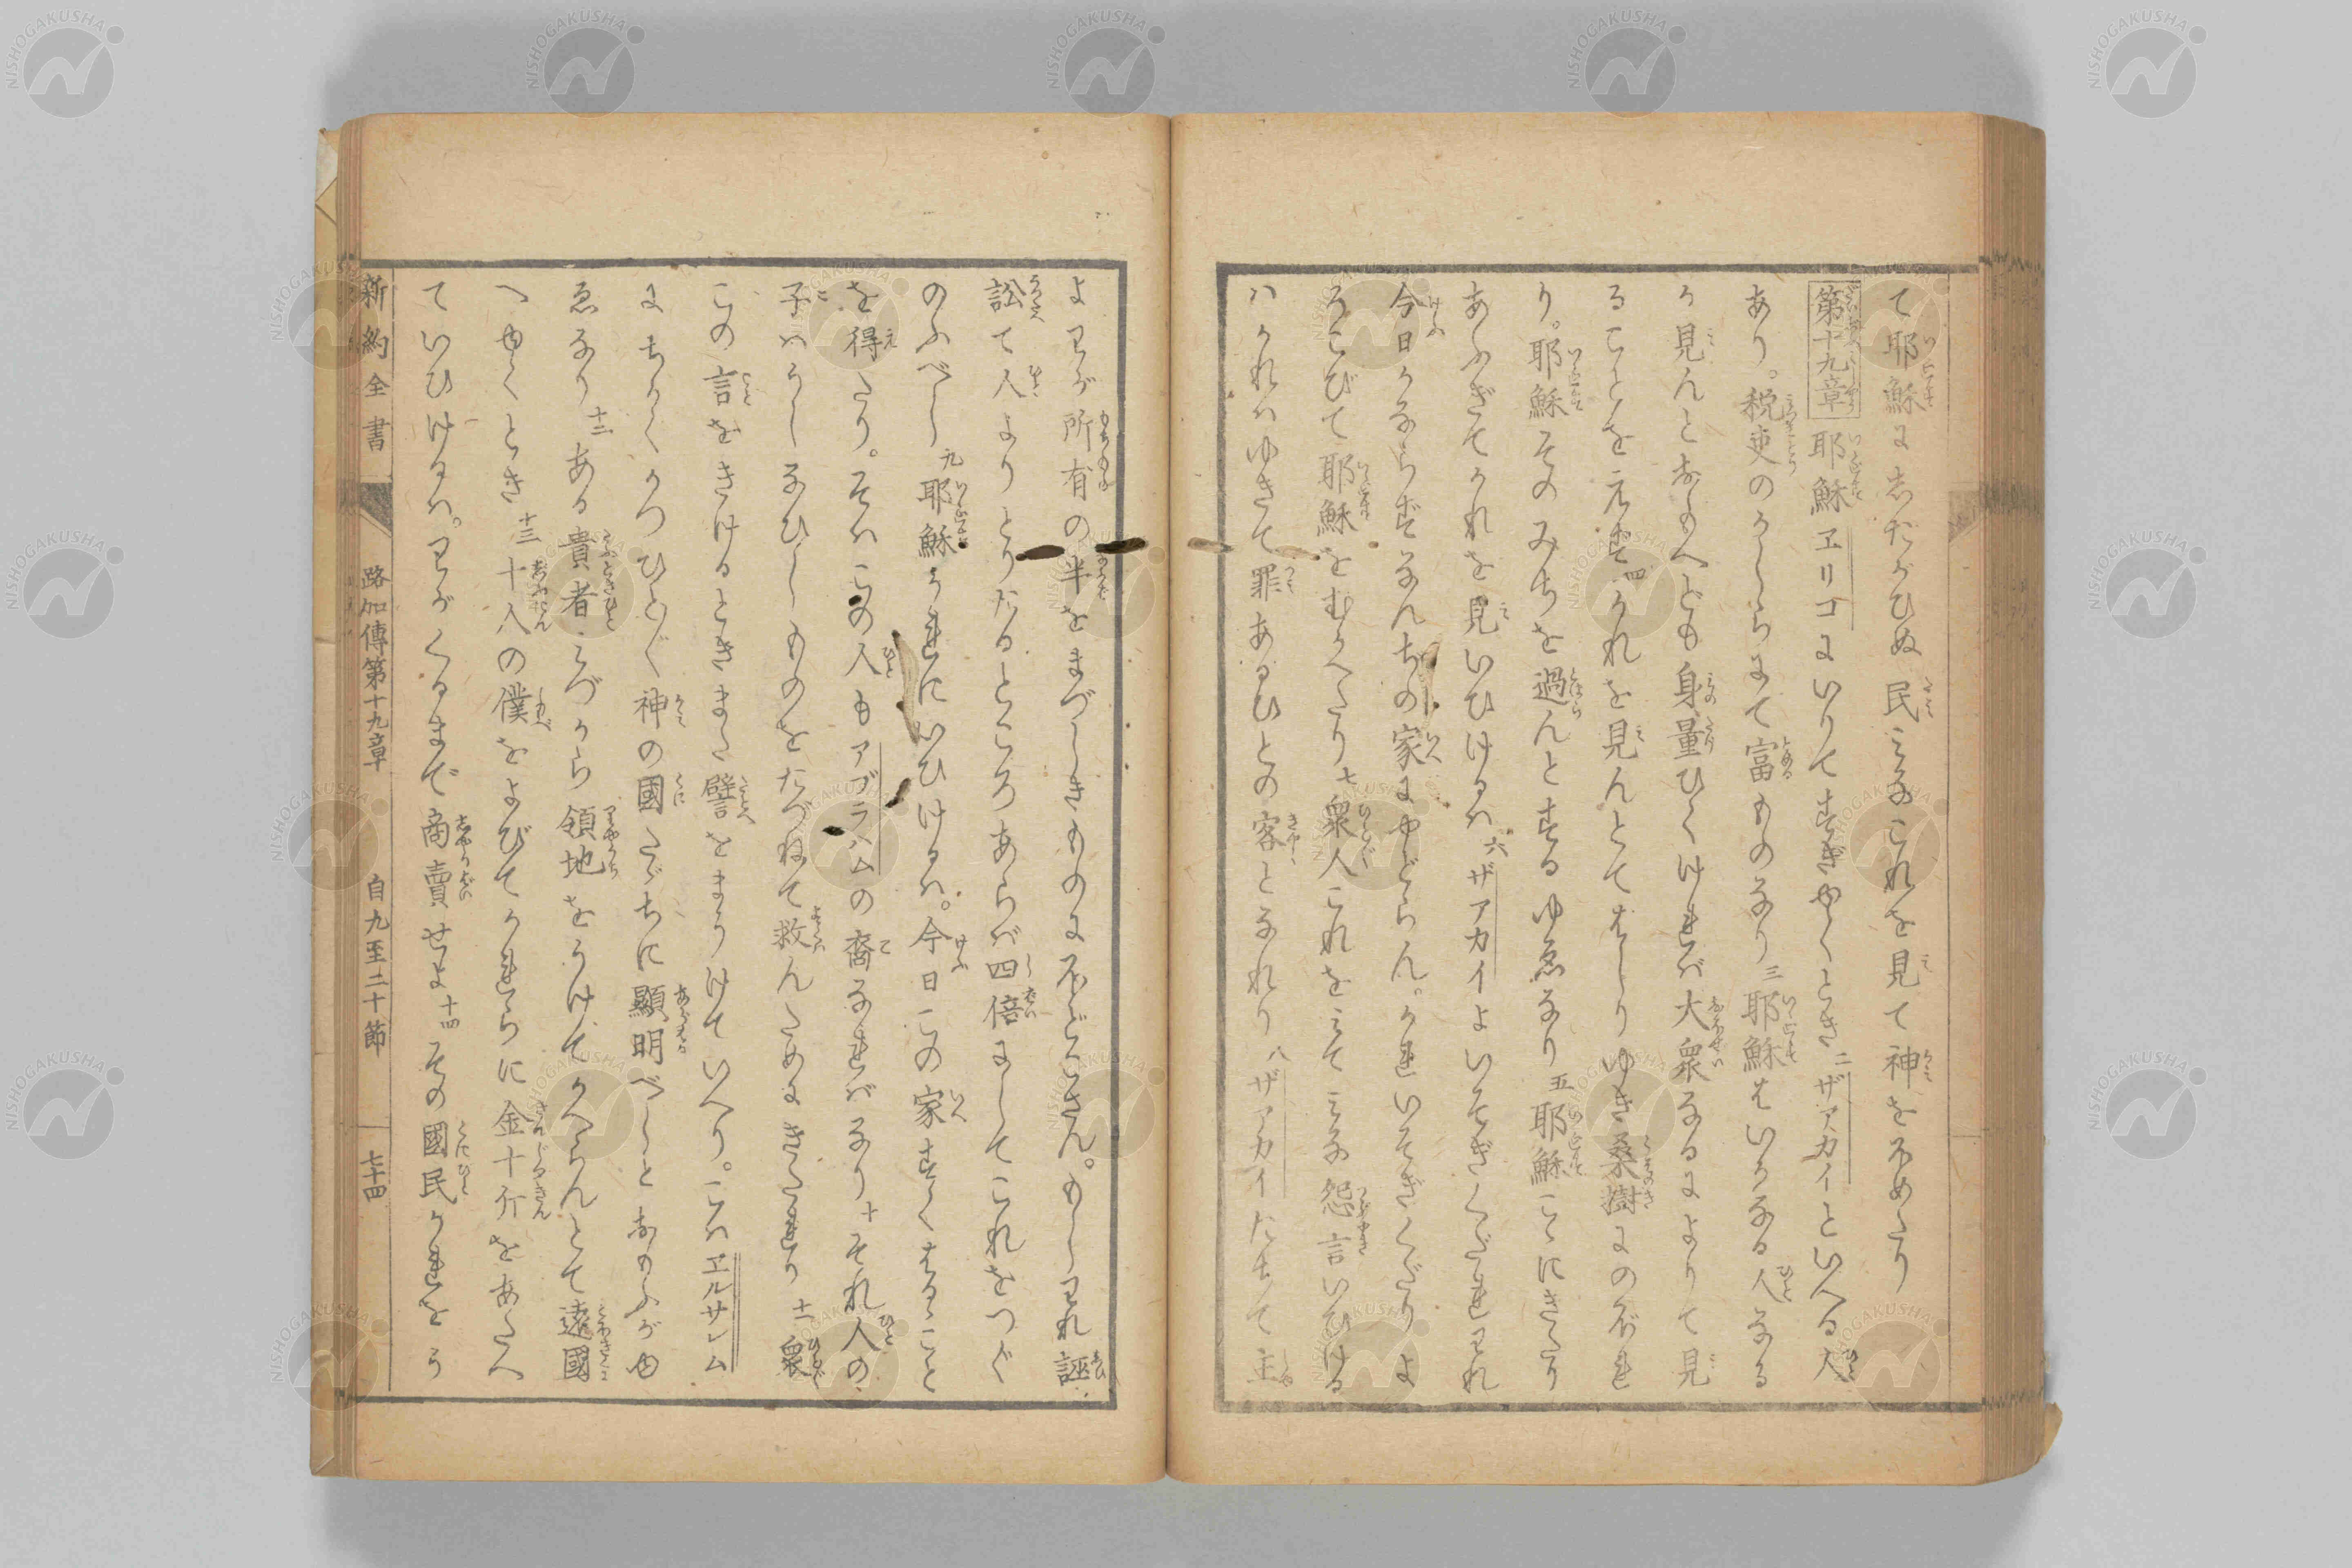 て耶穌にしたがひぬ民みなこれを見て神をほめたり
第十九章 耶穌ヱリコにいりてすぎゆくとき二ザアカイといへる人
あり。税吏のかしらにて富ものなり三耶穌はいかなる人なる
か見んとおもへども身量ひくければ大衆なるによりて見
ることを元ず四かれを見んとてはしりゆき桑樹にのぼれ
り。耶穌そのみちを過んとするゆゑなり五耶穌こゝにきたり
あふぎてかれを見いひけるハ六ザアカイよいそぎくだれわれ
今日かならずなんぢの家にやどらん。かれいそぎくだりよ
ろこびて耶穌をむかへたり七衆人これをみてみな怨言いひける
ハかれハゆきて罪あるひとの客となれり八ザアカイたちて主
よわが所有の半をまづしきものにほどこさん。もしわれ誣
訟て人よりとりたるところあらば四倍にしてこれをつぐ
のふべし九耶穌かれにいひけるハ。今日この家すくはるゝこと
を得たり。そハこの人もアブラハムの裔なればなり十それ人の
子ハうしなひしものをたづねて救んためにきたれり十一衆
この言をきけるときまた譬をまうけていへり。こハヱルサレム
にちかくかつひとびと神の國たゞちに顯明べしとおもふがゆ
ゑなり十二ある貴者みづから領地をうけてかへらんとて遠國
へゆくとき十三十人の僕をよびてかれらに金十斤をあたへ
ていひけるハ。わがくるまで商賣せよ十四その國民かれをう
新約全書 路加傳第十九章 自九至二十節 七十四
NISHOGAKUSHA